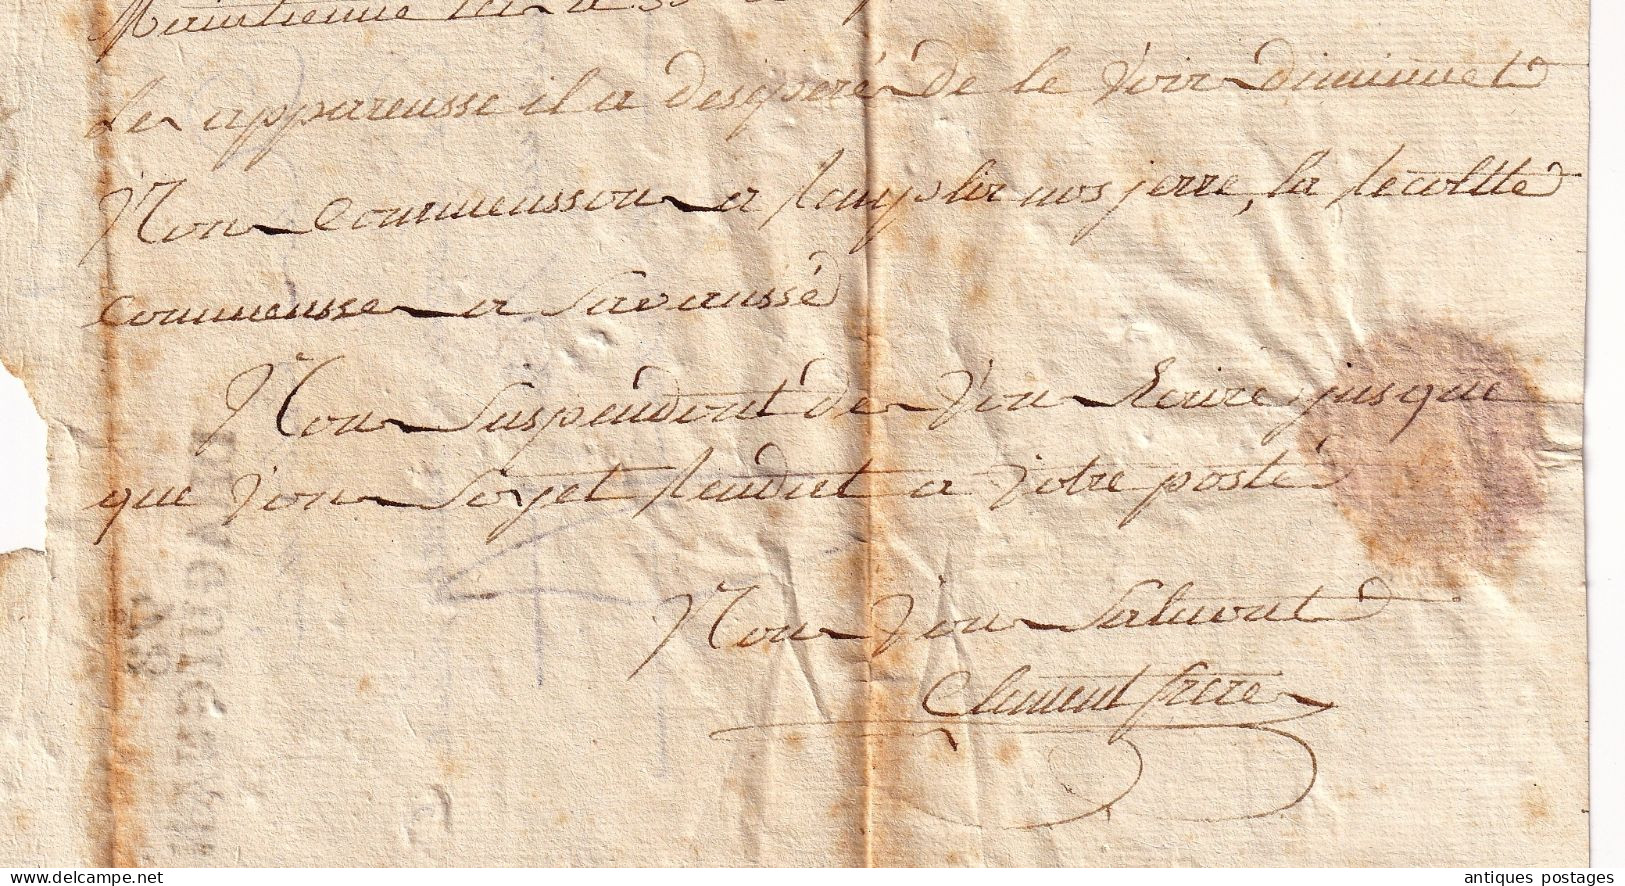 Maintienne
Les apparensse il a desesperé de le voir diminuet
Nou commensson a Remplir nos jerre, la Recoltte
commensse a Savaussé
Nou Suspendont de Vou Ecrire jusque
que Vou Soyet Rendut a Votre posté
Nou Vou Saluont
Clement frere
antiques postages